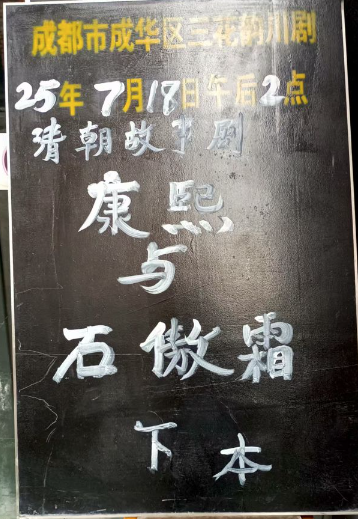 成都市成华区三花韵川剧
25年7月18日午后2点
清朝故事剧
康熙
与
石傲霜
下本